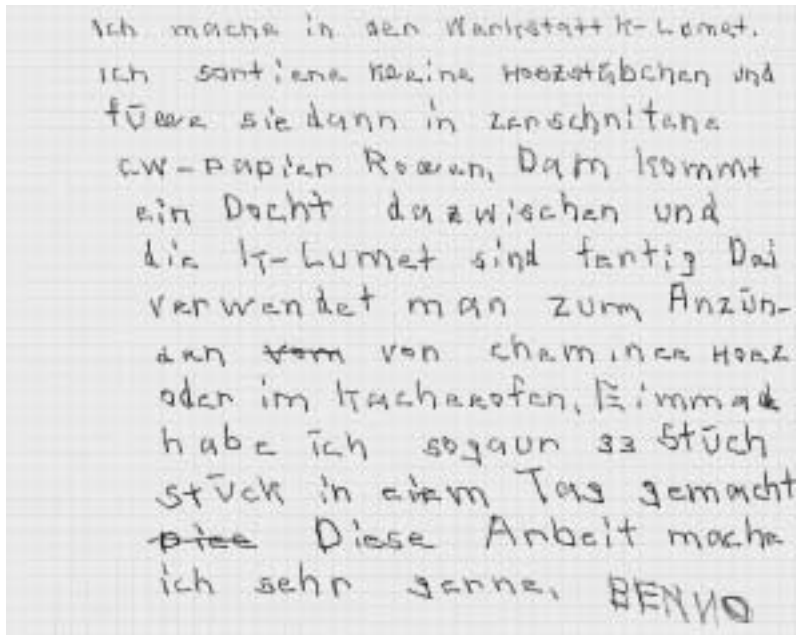 Ich mache in der Werkstatt K-Lumet.
Ich sortiere kleine Holzstäbchen und
fülle sie dann in zerschnitene
cw-papier Rollen, Dann kommt
ein Docht dazwischen und
die K-Lumet sind fertig Das
verwendet man zum Anzün-
den vom von cheminee Holz
oder im Kachelofen, Einmal
habe ich sogaur 33 Stück
stück in einem Tag gemacht
piee Diese Arbeit mache
ich sehr gerne, BENNO